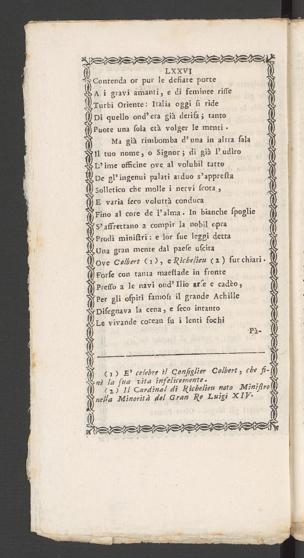 LXXVI
Contenda or pur le desiate porte
A i gravi amanti, e di feminee risse
Turbi Oriente: Italia oggi si ride
Di quello ond'era già derisa; tanto
Puote una sola età volger le menti.
Ma già rimbomba d'una in altra sala
Il tuo nome, o Signor; di già l'udìro
L'ime officine ove al volubil tatto
De gl'ingenui palati arduo s'appresta
Solletico che molle i nervi scota,
E varia seco voluttà conduca
Fino al core de l'alma. In bianche spoglie
S'affrettano a compir la nobil opra
Prodi ministri: e lor sue leggi detta
Una gran mente dal paese uscita
Ove Colbert (1), e Richelieu (2) fur chiari.
Forse con tanta maestade in fronte
Presso a le navi ond'Ilio arse e cadèo,
Per gli ospiti famosi il grande Achille
Disegnava la cena, e seco intanto
Le vivande cocean su i lenti fochi
Pa-
(1) E' celebre il Consiglier Colbert, che fi-
nì la sua vita infelicemente.
(2) Il Cardinal di Richelieu noto Ministro
nella Minorità del Gran Re Luigi XIV.